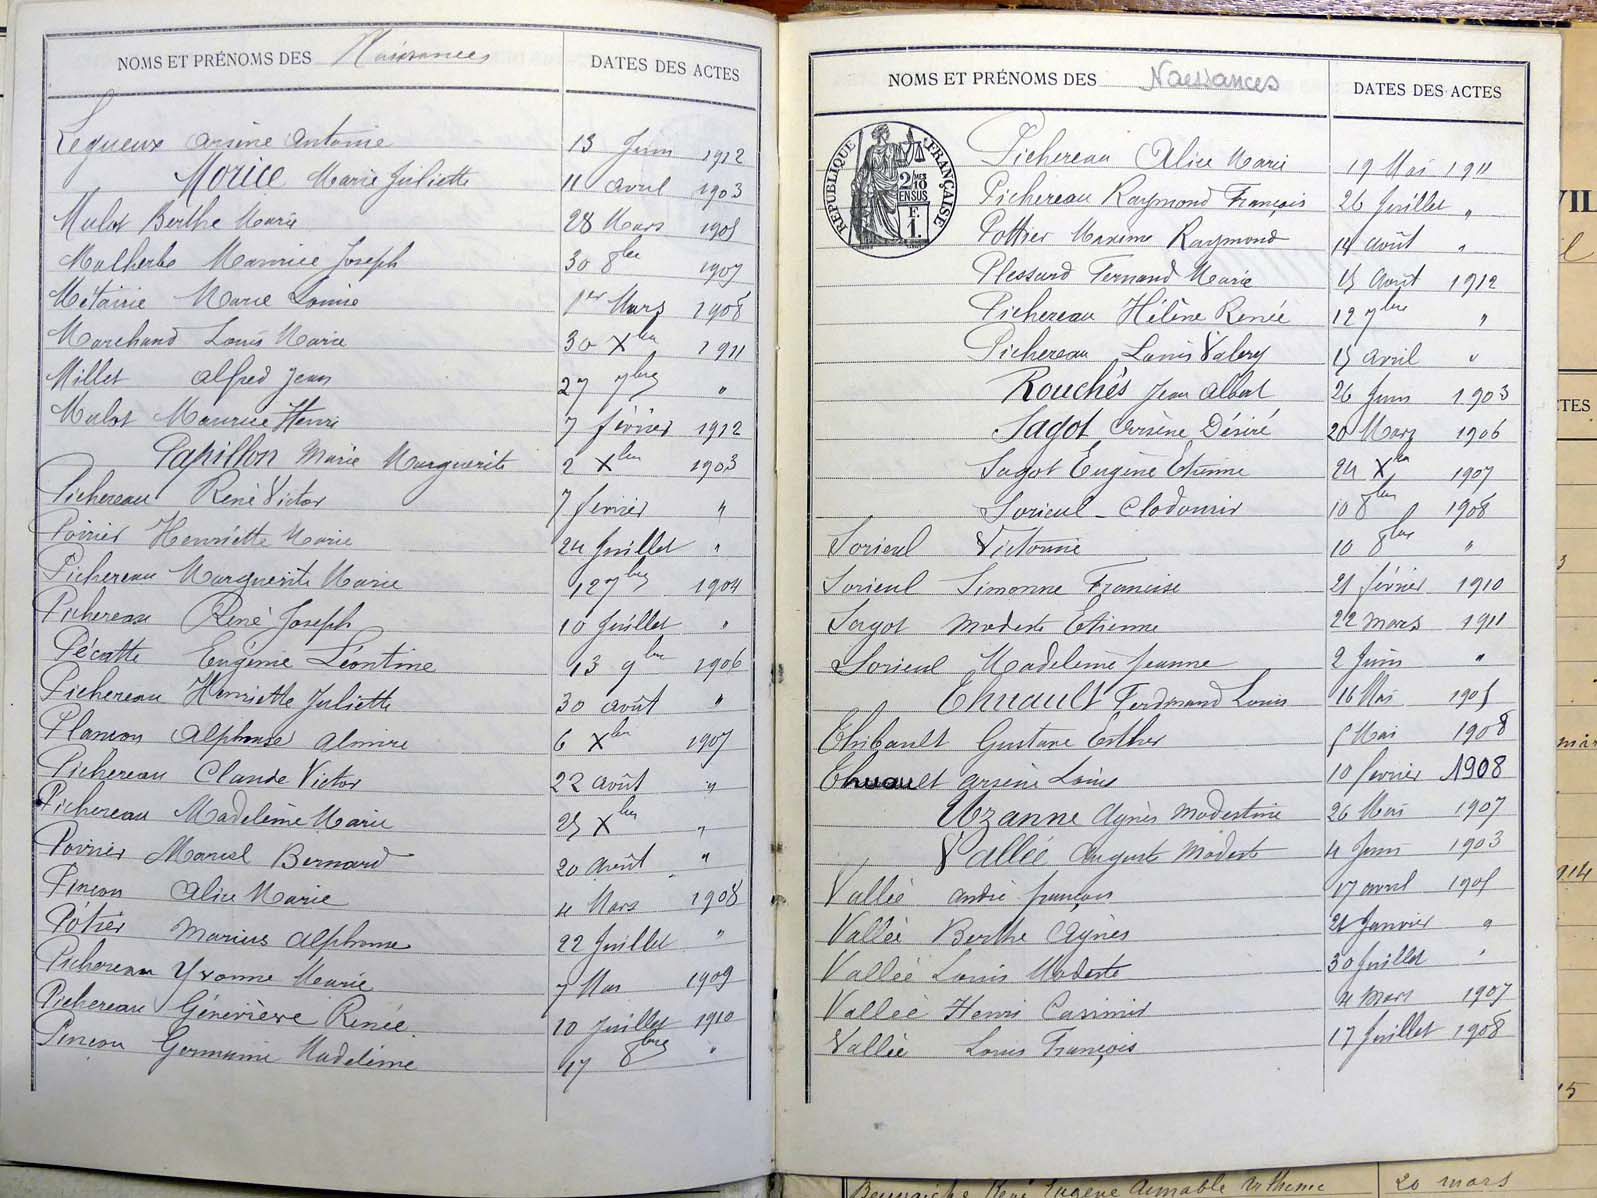 NOMS ET PRÉNOMS DES Naissances DATES DES ACTES
Lequeux Arsène Antoine 13 Juin 1912
Morice Marie Juliette 11 avril 1903
Mulot Berthe Marie 28 Mars 1905
Malherbe Maurice Joseph 30 8bre 1907
Métairie Marie Louise 1er Mars 1908
Marchand Louis Marie 30 Xbre 1911
Millet Alfred Jean 27 7bre "
Mulot Maurice Henri 7 février 1912
Papillon Marie Marguerite 2 Xbre 1903
Pichereau René Victor 7 février "
Poirier Henriette Marie 24 Juillet "
Pichereau Marguerite Marie 12 7bre 1904
Pichereau René Joseph 10 Juillet "
Pécatte Eugénie Léontine 13 9bre 1906
Pichereau Henriette Juliette 30 août "
Plançon Alphonse Almire 6 Xbre 1907
Pichereau Claude Victor 22 août "
Pichereau Madeleine Marie 25 Xbre "
Poirier Marcel Bernard 20 Août "
Pinçon Alice Marie 4 Mars 1908
Potier Marius Alphonse 22 Juillet "
Pichereau Yvonne Marie 7 Mai 1909
Pichereau Géneviève Renée 10 Juillet 1910
Pinçon Germaine Madeleine 17 8bre "
NOMS ET PRÉNOMS DES Naissances DATES DES ACTES
RÉPUBLIQUE FRANÇAISE
2/10 MES
EN SUS
F.
1.
Pichereau Alice Marie 19 Mai 1911
Pichereau Raymond François 26 Juillet "
Pottier Maxime Raymond 14 août "
Plessard Fernand Marie 15 Août 1912
Pichereau Hélène Renée 12 7bre "
Pichereau Louis Valery 15 avril "
Rouchés Jean Albert 26 Juin 1903
Sagot Arsène Désiré 20 Mars 1906
Sagot Eugène Etienne 24 Xbre 1907
Sorieul - Clodomir 10 8bre 1908
Sorieul Victorine 10 8bre "
Sorieul Simonne Francise 21 février 1910
Sagot Modeste Etienne 22 mars 1911
Sorieul Madeleine Jeanne 2 Juin "
Thuault Ferdinand Louis 16 Mai 1905
Thibault Gustave Esther 5 Mai 1908
Thuault Arsène Louis 10 février 1908
Uzanne Agnès Modestine 26 Mai 1907
Vallée Auguste Modeste 4 Juin 1903
Vallée André françois 17 avril 1905
Vallée Berthe Agnès 21 Janvier "
Vallée Louis Modeste 30 Juillet "
Vallée Henri Casimir 4 Mars 1907
Vallée Louis François 17 Juillet 1908
VIL
CTES
3
914
15
René Eugène Aimable 20 mars